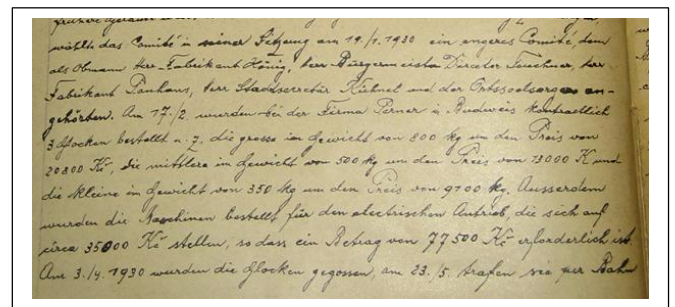 wählte das Comité in seiner Sitzung am 19./1. 1930 ein engeres Comité, dem
als Obmann Herr Fabrikant Hönig, Herr Bürgermeister Director Teuchner, Herr
Fabrikant Panhans, Herr Stadtsecretär Kühnel und der Ortsseelsorger an-
gehörten. Am 17./2. wurden bei der Firma Perner in Budweis kontraktlich
3 Glocken bestellt u. z. die grosse im Gewicht von 800 kg um den Preis von
20800 Kč, die mittlere im Gewicht von 500 kg um den Preis von 13000 K und
die kleine im Gewicht von 350 kg um den Preis von 9100 kg. Ausserdem
wurden die Maschinen bestellt für den electrischen Antrieb, die sich auf
circa 35000 Kč stellen, so dass ein Betrag von 77500 Kč erforderlich ist.
Am 3./4. 1930 wurden die Glocken gegossen, am 23./5. trafen sie per Bahn